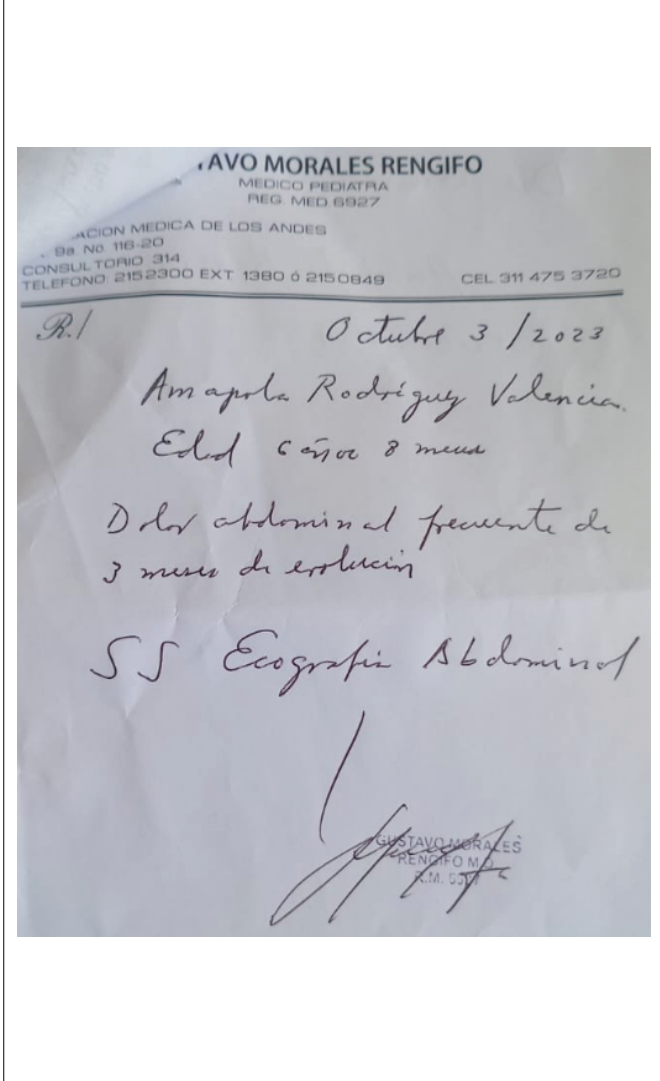 AVO MORALES RENGIFO
MEDICO PEDIATRA
REG. MED 6927
ACION MEDICA DE LOS ANDES
9a. No. 116-20
CONSULTORIO 314
TELEFONO: 2152300 EXT. 1380 ó 2150849 CEL 311 475 3720
R./ Octubre 3 / 2023
Amapola Rodríguez Valencia.
Edad 6 años 8 meses
Dolor abdominal frecuente de
3 meses de evolución
SS Ecografía Abdominal
GUSTAVO MORALES
RENGIFO M.D.
R.M.